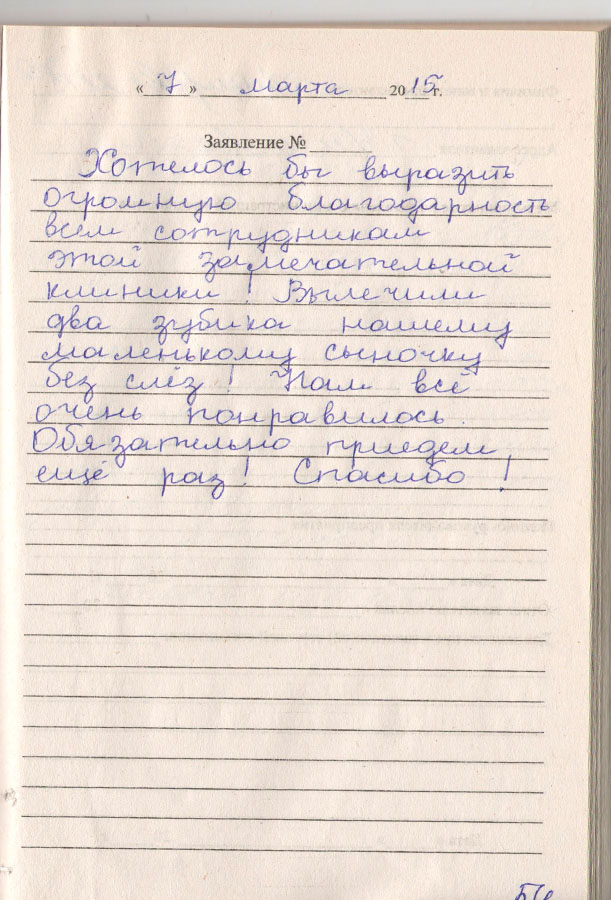 « 7 » марта 2015 г.
Заявление № ______
Хотелось бы выразить
огромную благодарность
всем сотрудникам
этой замечательной
клиники! Вылечили
два зубика нашему
маленькому сыночку
без слёз! Нам всё
очень понравилось.
Обязательно приедем
ещё раз! Спасибо!